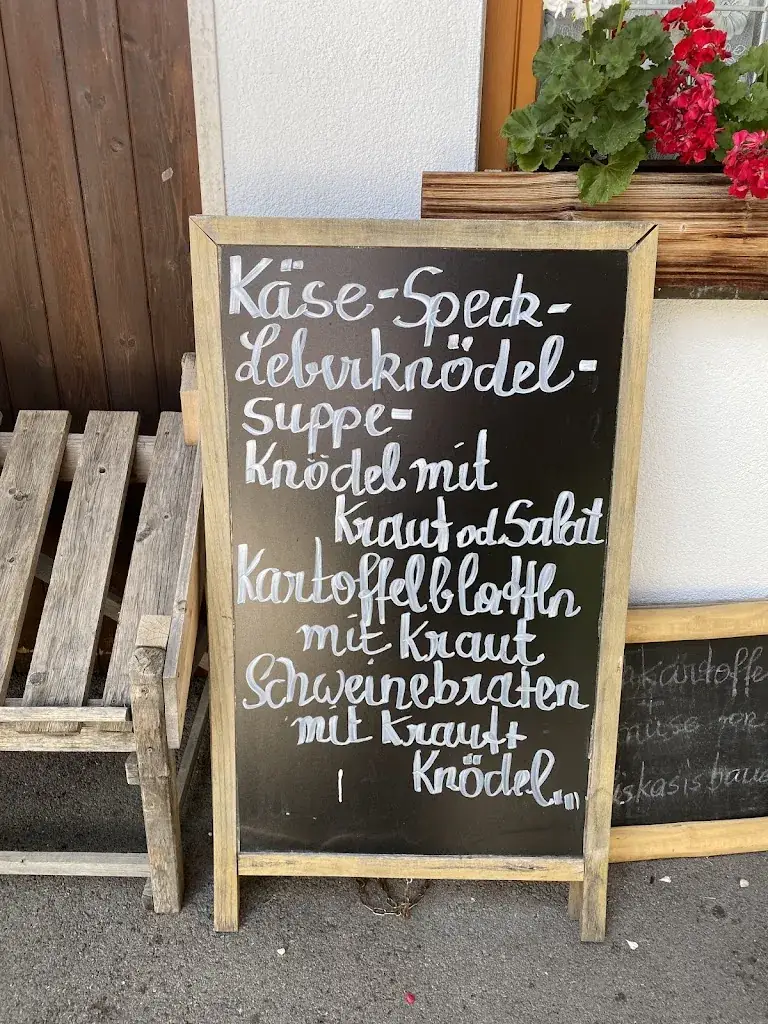 Käse-Speck-
Leberknödel-
suppe-
Knödel mit
Kraut od. Salat
Kartoffelblattln
mit Kraut
Schweinebraten
mit Kraut+
Knödel...